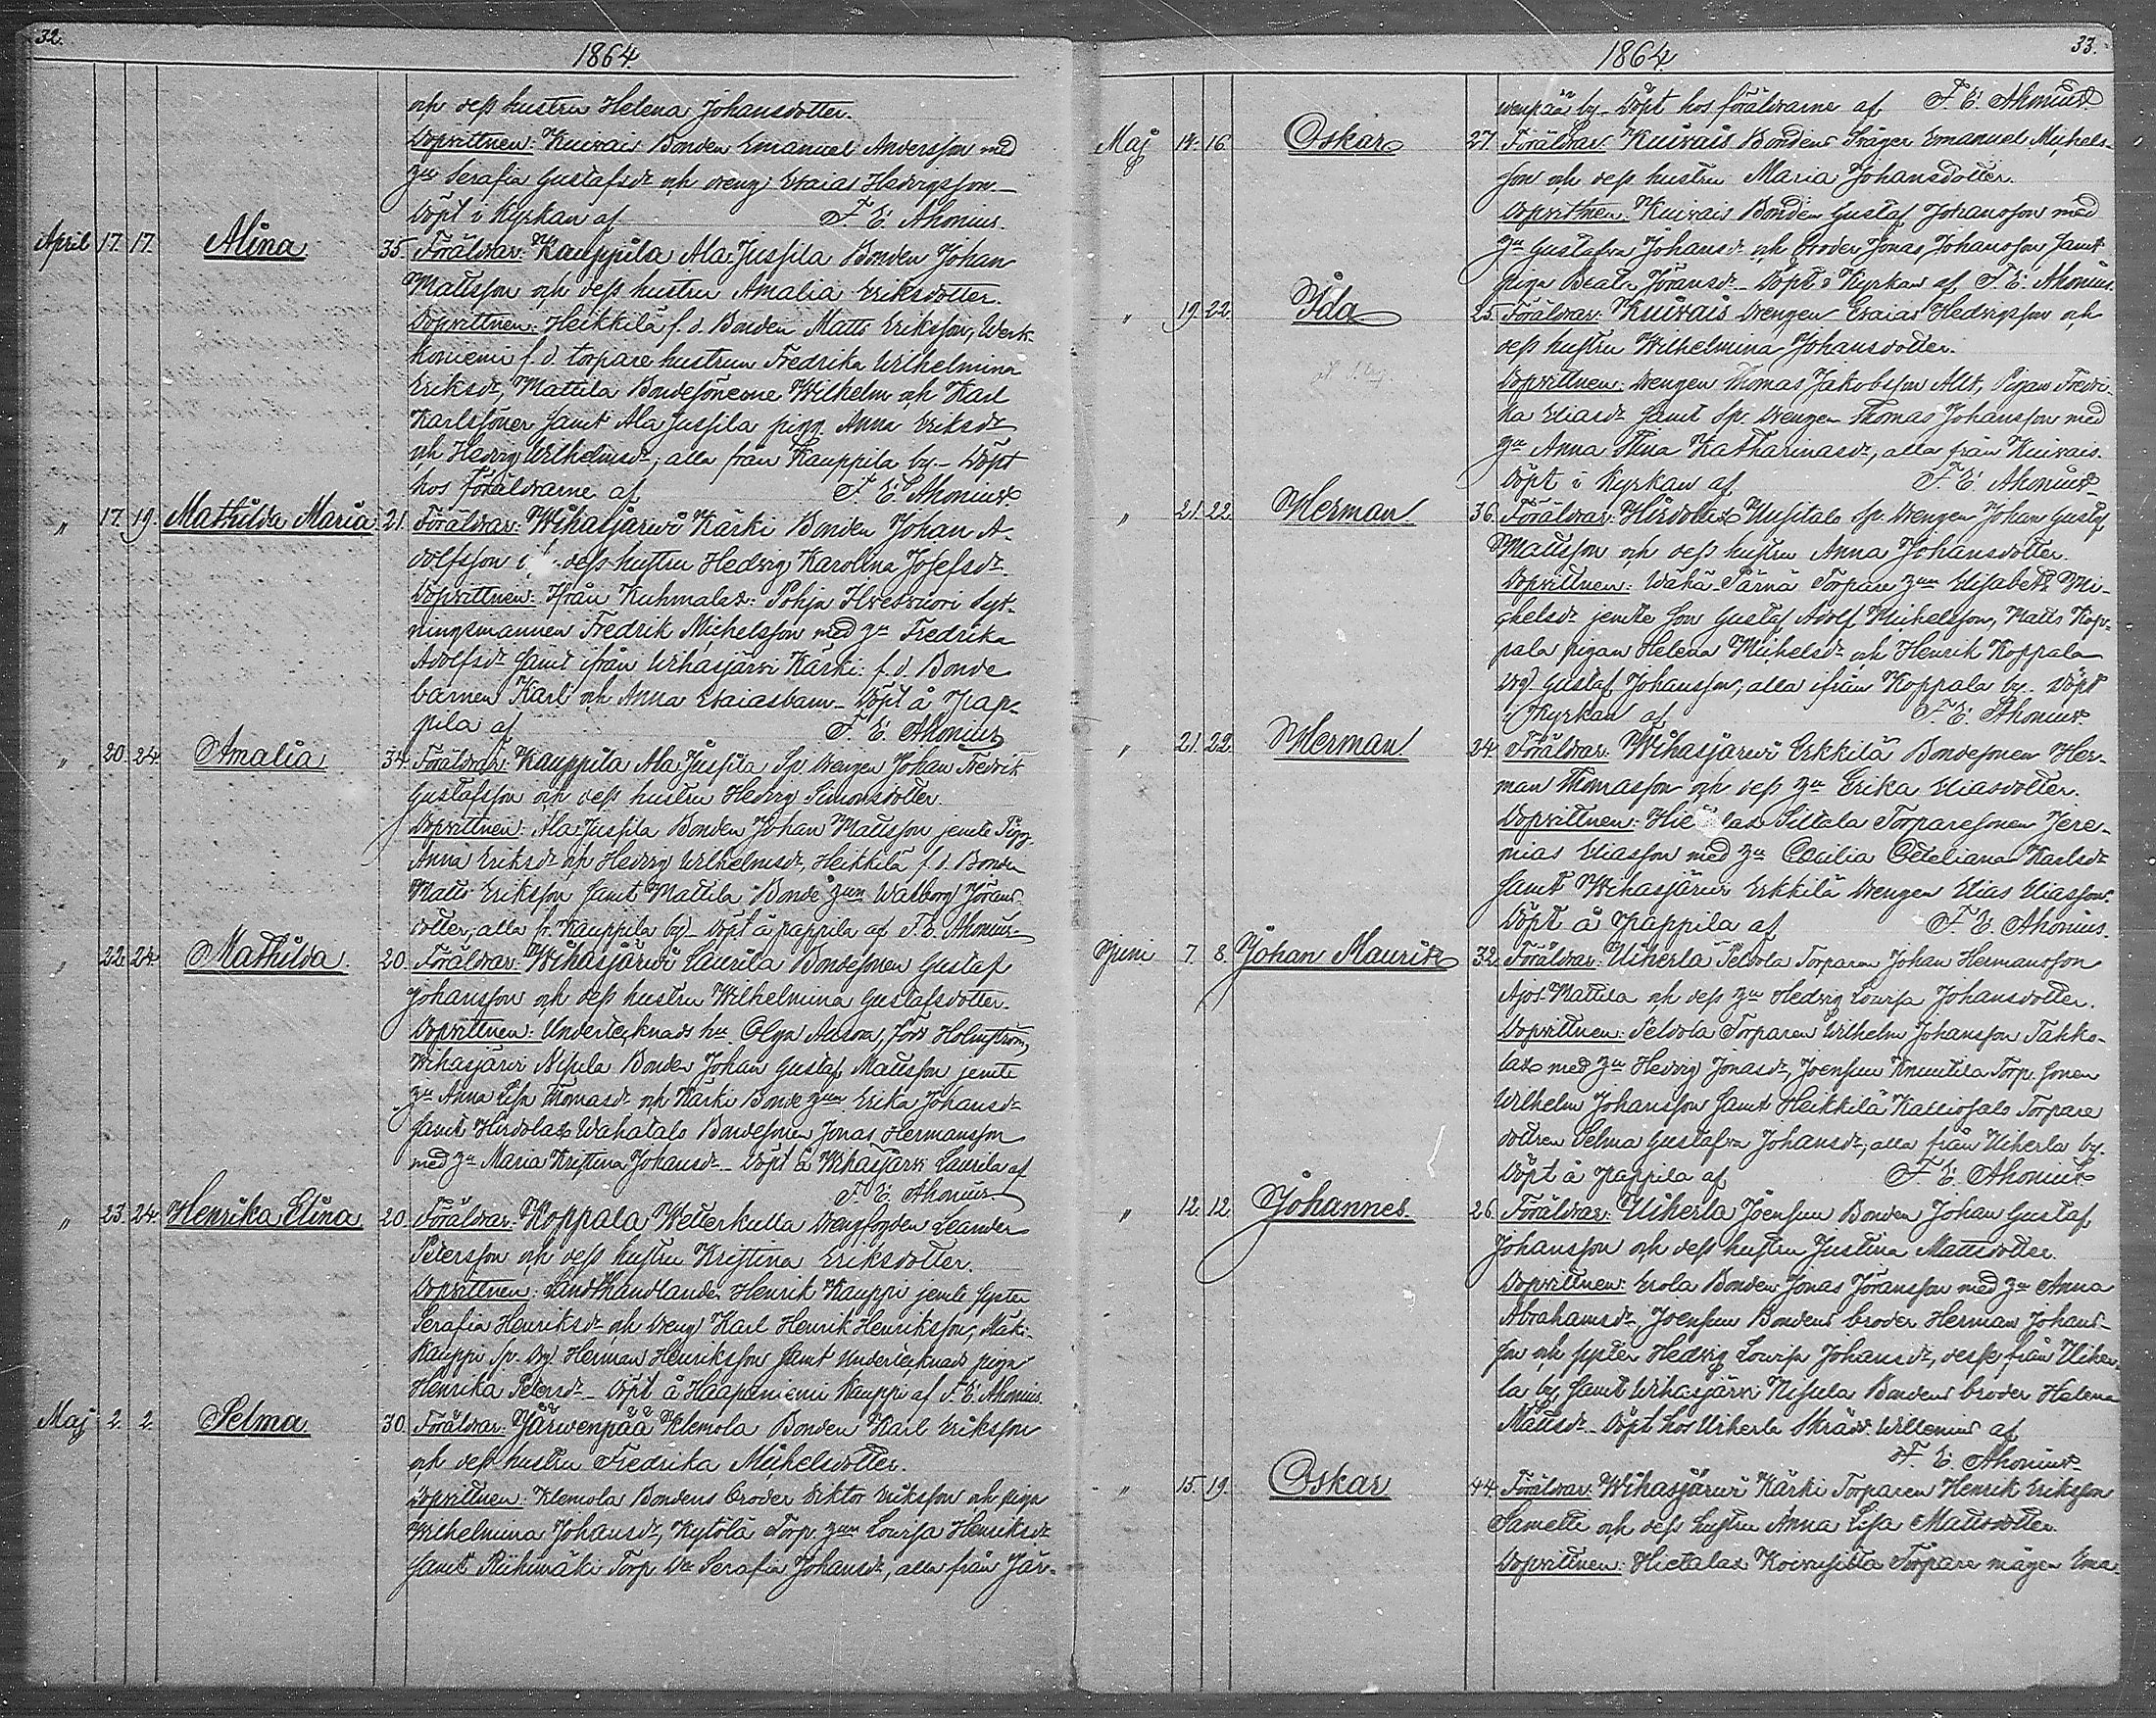 32.
1864.
och dess hustru Helena Johansdotter.
Dopvittnen: Kuivais Bonden Emanuel Andersson med
hu Serafia Gustafsdr och dreng Esaias Hedvigsson.
Döpt i Kyrkan af F. E. Ahonius.
April 17. 17. Alina 35. Föräldrar: Kauppila Ala Jussila Bonden Johan
Mattsson och dess hustru Amalia Eriksdotter.
Dopvittnen: Heikkilä f. d. Bonden Matts Eriksson, Werk-
koniemi f. d. torpare hustrun Fredrika Wilhelmina
Eriksdr, Mattila Bondesönerne Wilhelm och Karl
Karlssöner samt Ala Jussila pigg. Anna Eriksdr
och Hedvig Wilhelmsdr, alla från Kauppila by. Döpt
hos föräldrarne af F. E. Ahonius
" 17. 19. Mathilda Maria 21. Föräldrar: Wihasjärwi Kärki Bonden Johan A-
dolfsson dess hustru Hedvig Karolina Josefsdr.
Dopvittnen: Ifrån Kuhmalax: Pohja Hvetvuori Syt-
ningsmannen Fredrik Michelsson med hu Fredrika
Adolfsdr samt ifrån Wihasjärvi Kärki: f. d. Bonde
barnen Karl och Anna Esaiasbarn. Döpt å Pap-
pila af F. E. Ahonius
" 20. 24. Amalia 34. Föräldrar: Kauppila Ala Jussila Sp. Drengen Johan Fredrik
Gustafsson och dess hustru Hedvig Simonsdotter.
Dopvittnen: Ala Jussila Bonden Johan Mattsson jemte Pigg.
Anna Eriksdr och Hedvig Wilhelmsdr, Heikkilä f. d. Bonden
Matts Eriksson samt Mattila Bonde hun Walborg Jörans-
dotter, alla fr. Kauppila by. Döpt å pappila af F. E. Ahonius
" 22. 24. Mathilda 20. Föräldrar: Wihasjärwi Laurila Bondesonen Gustaf
Johansson och dess hustru Wilhelmina Gustafsdotter.
Dopvittnen: Undertecknads hu Olga Aurora, född Holmström,
Wihasjärvi Nipula Bonden Johan Gustaf Mattsson jemte
hu Anna Lisa Thomasdr och Kärki Bonde hun Erika Johansdr
samt Hirvolax Wahatalo Bondesonen Jonas Hermansson
med hu Maria Kristina Johansdr. Döpt å Wihasjärvi Laurila af
F. E. Ahonius
" 23. 24. Henrika Elina 20. Föräldrar: Koppala Wetterkulla Drengfogden Leander
Petersson och dess hustru Kristina Eriksdotter.
Dopvittnen: Landthandlanden Henrik Kauppi jemte syster
Serafia Henriksdr och Dreng Karl Henrik Henriksson, Mäki-
Kauppi Sp. Dg. Herman Henriksson samt Undertecknads piga
Henrika Petersdr. Döpt å Haapaniemi Kauppi af F. E. Ahonius.
Maj 2. 2. Selma 30. Föräldrar: Järwenpää Klemola Bonden Karl Eriksson
och dess hustru Fredrika Michelsdotter.
Dopvittnen: Klemola Bondens broder Viktor Eriksson och piga
Wilhelmina Johansdr, Kytölä Torp. hun Lovisa Henriksdr
samt Riihimäki Torp. Dr Serafia Johansdr, alla från Jär-
33.
1864
wenpää by. Döpt hos föräldrarne af F. E. Ahonius
Maj 14. 16. Oskar 27. Föräldrar: Kuivais Bondens Svåger Emanuel Michels-
son och dess hustru Maria Johansdotter.
Dopvittnen: Kuivais Bonden Gustaf Johansson med
hu Gustafva Johansdr och broder Jonas Johansson samt
piga Beata Jöransdr. Döpt i Kyrkan af F. E. Ahonius.
" 19. 22. Ida 25. Föräldrar: Kuivais Drengen Esaias Hedvigsson och
dess hustru Wilhelmina Johansdotter.
Dopvittnen: Drengen Thomas Jakobsson Alit, Pigan Fredri-
ka Eliasdr samt Sp. Drengen Thomas Johansson med
hu Anna Stina Katharinasdr, alla från Kuivais.
Döpt i Kyrkan af F. E. Ahonius
" 21. 22. Herman 36. Föräldrar: Hirvolax Uusitalo Sp. Drengen Johan Gustaf
Mattsson och dess hustru Anna Johansdotter.
Dopvittnen: Wäkä-Pärnä Torpare hun Elisabeth Mi-
chelsdr jemte son Gustaf Adolf Michelsson, Matts Kop-
pala pigan Helena Michelsdr och Henrik Koppala
drg. Gustaf Johansson, alla ifrån Koppala by. Döpt
i Kyrkan af F. E. Ahonius
" 21. 22. Herman 24. Föräldrar: Wihasjärwi Erkkilä Bondesonen Her-
man Thomasson och dess hu Erika Eliasdotter.
Dopvittnen: Hietalax Siltala Torparesonen Jere-
mias Eliasson med hu Cæcilia Ottiliana Karlsdr
samt Wihasjärwi Erkkilä Drengen Elias Eliasson.
Döpt å Pappila af F. E. Ahonius.
Juni 7. 8. Johan Maurits 32. Föräldrar: Uiherla Peldola Torparen Johan Hermansson
Ajos-Mattila och dess hu Hedvig Lovisa Johansdotter.
Dopvittnen: Peldola Torparen Wilhelm Johansson Takko-
lax med hu Hedvig Jonasdr, Joensuu Knuutila Torp. sonen
Wilhelm Johansson samt Heikkilä Kalliosalo Torpare
dottren Selma Gustafva Johansdr, alla från Uiherla by.
Döpt å Pappila af F. E. Ahonius
" 12. 12. Johannes 26. Föräldrar: Uiherla Joensuu Bonden Johan Gustaf
Johansson och dess hustru Justina Mattsdotter.
Dopvittnen: Erola Bonden Jonas Jöransson med hu Anna
Abrahamsdr, Joensuu Bondens broder Herman Johans-
son och syster Hedvig Lovisa Johansdr, desse från Uiher-
la by, samt Wihasjärvi Nipula Bondens broder Helena
Mattsdr. Döpt hos Uiherla Skräd. Willenius af
F. E. Ahonius
" 15. 19. Oskar 44. Föräldrar: Wihasjärwi Kärki Torparen Henrik Eriksson
Samette och dess hustru Anna Lisa Mattsdotter
Dopvittnen: Hietalax Koivusilta Torpare mågen Ema-